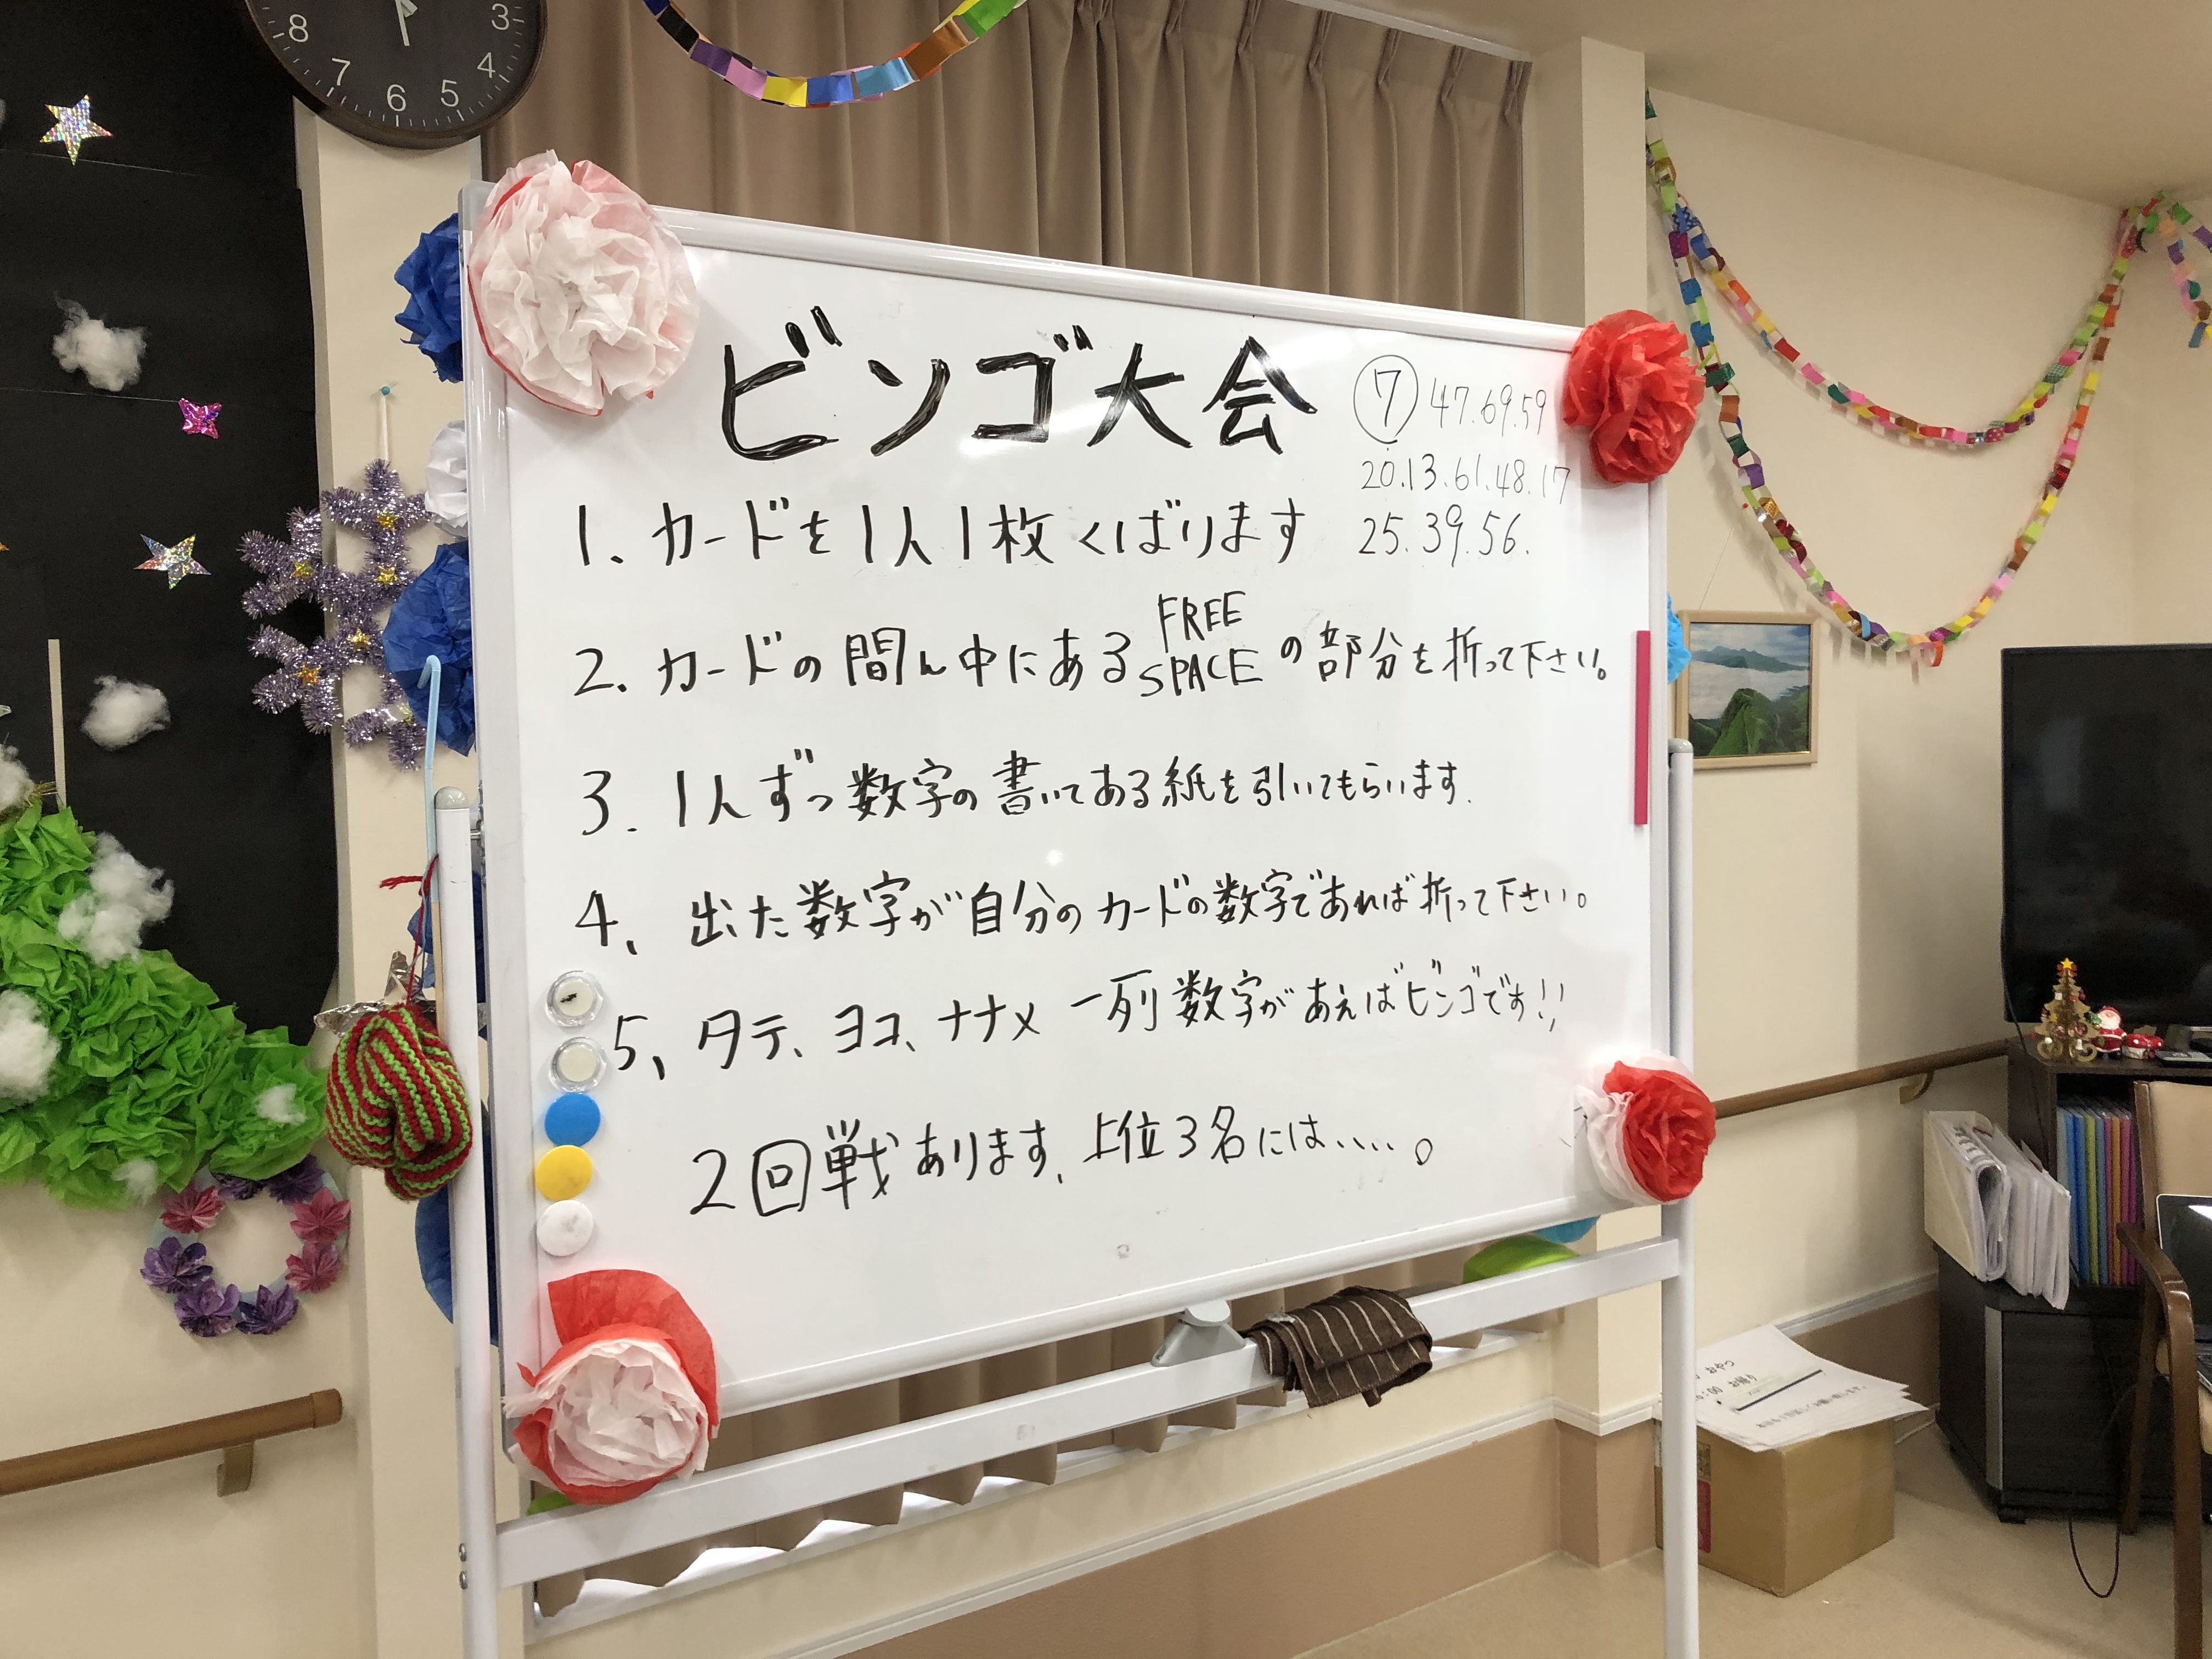 8 7 6 5 4 3
ビンゴ大会
⑦ 47.69.59
20.13.61.48.17
25.39.56.
1、カードを1人1枚くばります
2、カードの間ん中にあるFREE SPACEの部分を折って下さい。
3.1人ずつ数字の書いてある紙を引いてもらいます.
4、出た数字が自分のカードの数字であれば折って下さい。
5、タテ、ヨコ、ナナメ 一列数字があえばビンゴです!!
2回戦あります、上位3名には、、、、。
おやつ
:00 お帰り